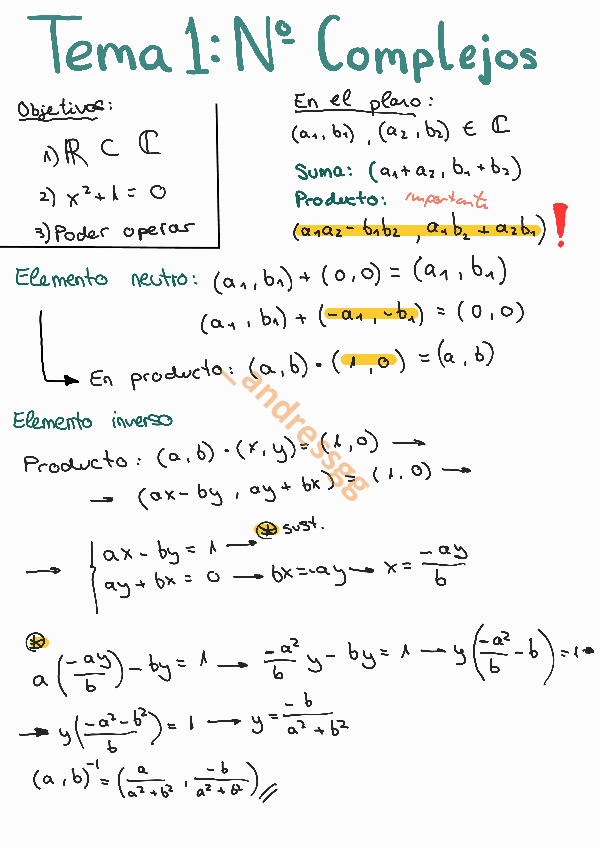 Tema 1: Nº Complejos
Objetivos:
1) ℝ ⊂ ℂ
2) x² + 1 = 0
3) Poder operar
En el plano:
(a₁, b₁), (a₂, b₂) ∈ ℂ
Suma: (a₁ + a₂, b₁ + b₂)
Producto: importante
(a₁a₂ - b₁b₂, a₁b₂ + a₂b₁) !
Elemento neutro: (a₁, b₁) + (0, 0) = (a₁, b₁)
(a₁, b₁) + (-a₁, -b₁) = (0, 0)
En producto: (a, b) · (1, 0) = (a, b)
_andressgg
Elemento inverso
Producto: (a, b) · (x, y) = (1, 0) →
→ (ax - by, ay + bx) = (1, 0) →
→ { ax - by = 1 → * sust.
ay + bx = 0 → bx = -ay → x = -ay/b
*
a(-ay/b) - by = 1 → -a²/b y - by = 1 → y(-a²/b - b) = 1 →
→ y(-a² - b²/b) = 1 → y = -b/a² + b²
(a, b)⁻¹ = (a/a² + b², -b/a² + b²) //